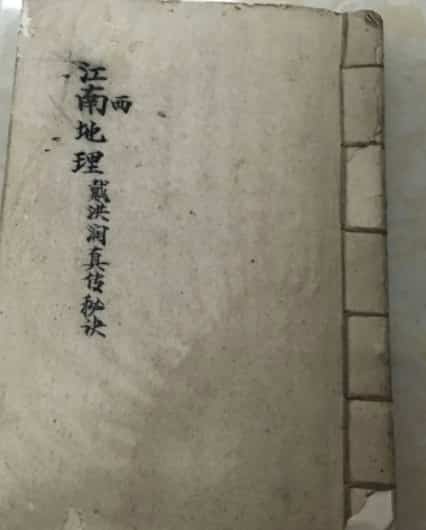 江南地理戴洪润真传秘诀
西